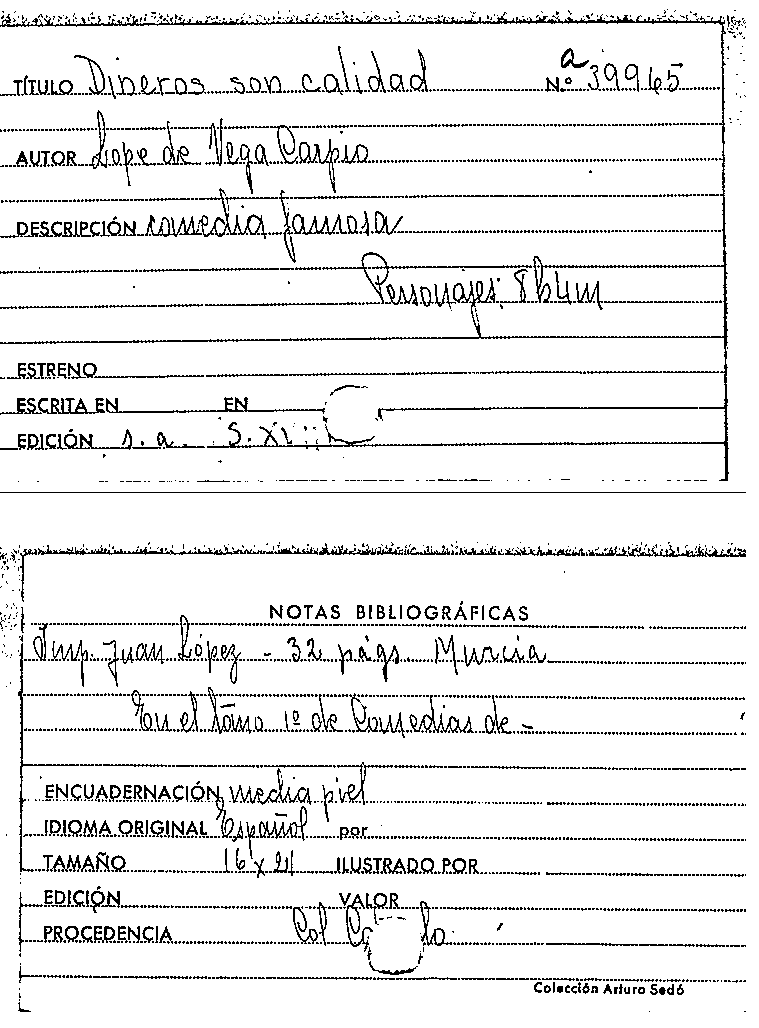 TÍTULO Dineros son calidad Nº a 39965
AUTOR Lope de Vega Carpio
DESCRIPCIÓN comedia famosa
Personajes: 8h4m
ESTRENO
ESCRITA EN EN
EDICIÓN s. a. S.
NOTAS BIBLIOGRÁFICAS
Imp. Juan López - 32 págs. Murcia
En el tomo 1º de Comedias de -
ENCUADERNACIÓN media piel
IDIOMA ORIGINAL Español por
TAMAÑO 16 x 21 ILUSTRADO POR
EDICIÓN VALOR
PROCEDENCIA Col
Colección Arturo Sedó